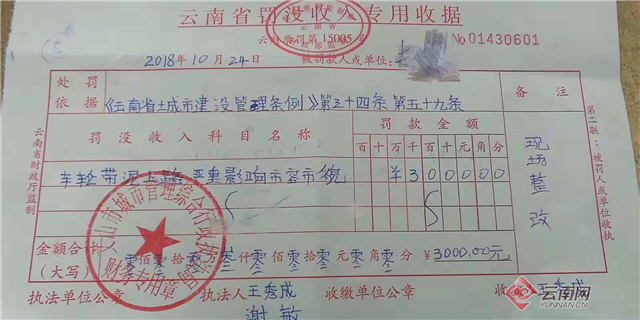 云南省罚没收入专用收据
云财监罚第15005号
No 01430601
2018年10月24日 被罚款人或单位:
处罚依据 《云南省土城市建设管理条例》第三十四条 第五十九条 备注
罚没收入科目名称 罚款金额
百十万千百十元角分
车轮带泥上路严重影响市容市貌 ¥300000
现场整改
金额合计(大写) 零佰零拾零万叁仟零佰零拾零元零角零分 ¥3000.00元
文山市城市管理综合行政执法局
财务专用章
执法单位公章 执法人 王秀成 收缴单位公章 收 王秀成
谢敏
云南省财政厅监制
第二联:被罚人或单位收执
云南网
YUNNAN.CN